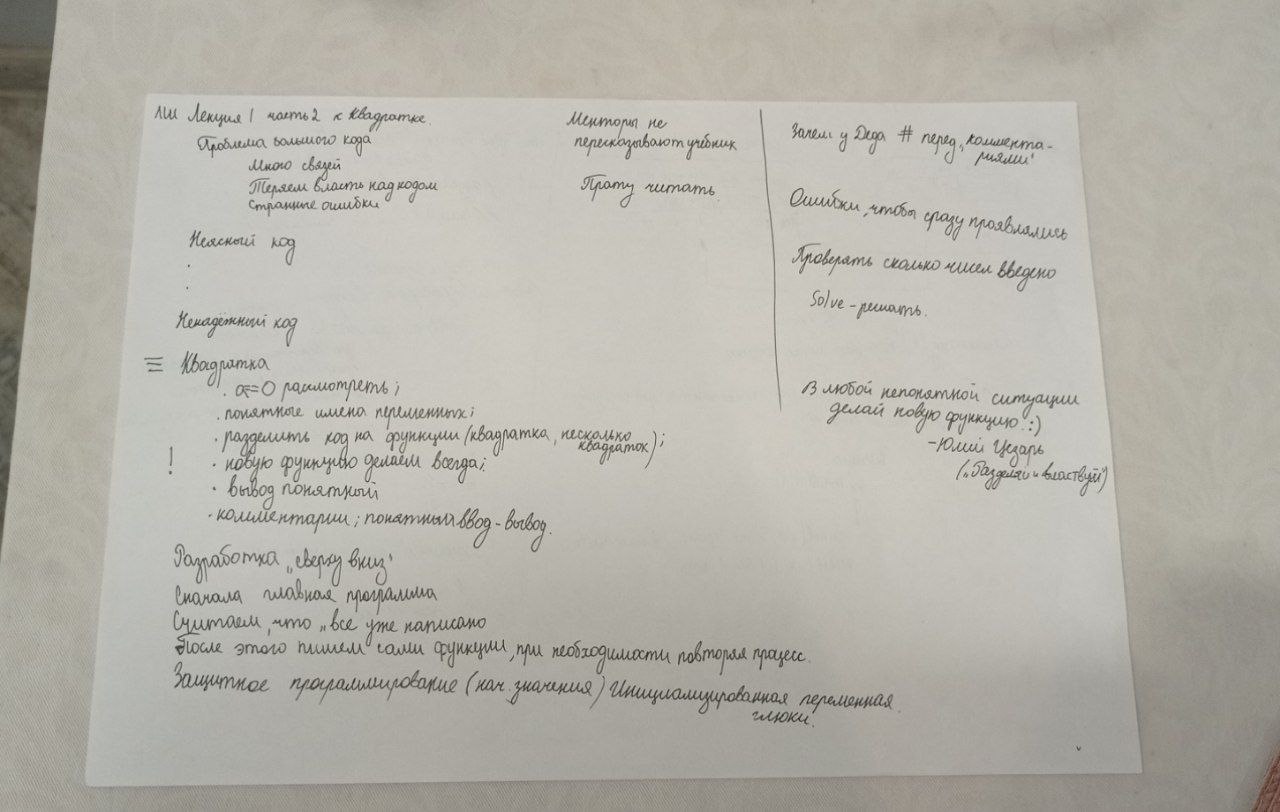 ЛШ Лекция 1 часть 2 к Квадратке.
Проблема большого кода
Много связей
Теряем власть над кодом
Странные ошибки
Неясный код
.
.
Ненадёжный код
Квадратка
. a==0 расмотреть;
. понятные имена переменных;
. разделить код на функции (квадратка, несколько
квадраток);
! . новую функцию делаем всегда;
. вывод понятный
. комментарии; понятный ввод-вывод.
Разработка „сверху вниз"
Сначала главная программа
Считаем, что „все уже написано
После этого пишем сами функции, при необходимости повторяя процесс.
Защитное программирование (нач. значения) Инициализированная переменная.
глюки.
Менторы не
пересказывают учебник
Прату читать.
Зачем у Деда # перед „коммента-
риями"
Ошибки, чтобы сразу проявлялись
Проверять сколько чисел введено
Solve - решать.
В любой непонятной ситуации
делай новую функцию! :)
-Юлий Цезарь
(„Разделяй и властвуй")